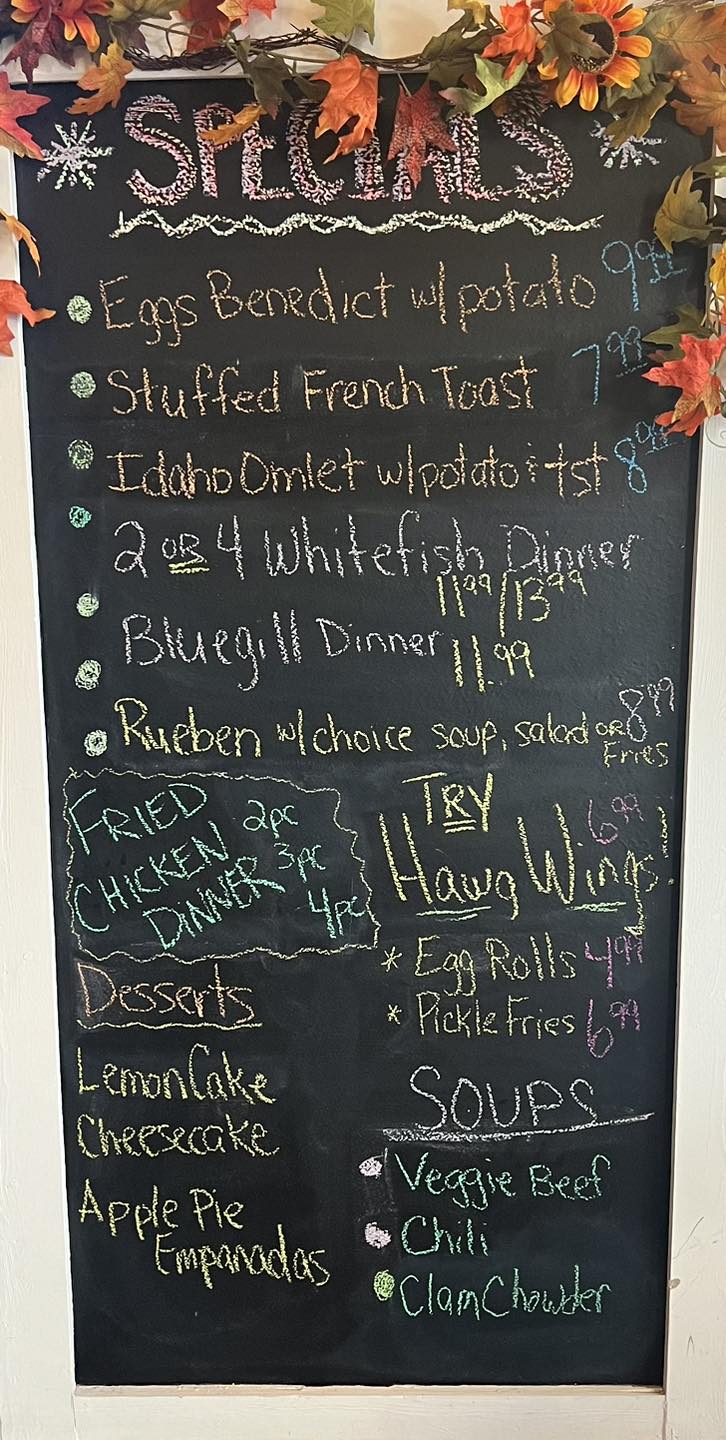 SPECIALS
Eggs Benedict w/potato 9.99
Stuffed French Toast 7.99
Idaho Omlet w/potato & tst 8.99
2 OR 4 Whitefish Dinner
11.99/13.99
Bluegill Dinner 11.99
Rueben w/choice soup, salad OR 8.99
Fries
FRIED 2pc
CHICKEN 3pc
DINNER 4pc
TRY
Hawg Wings! 6.99
* Egg Rolls 4.99
* Pickle Fries 6.99
Desserts
Lemon Cake
Cheesecake
Apple Pie
Empanadas
SOUPS
Veggie Beef
Chili
Clam Chowder